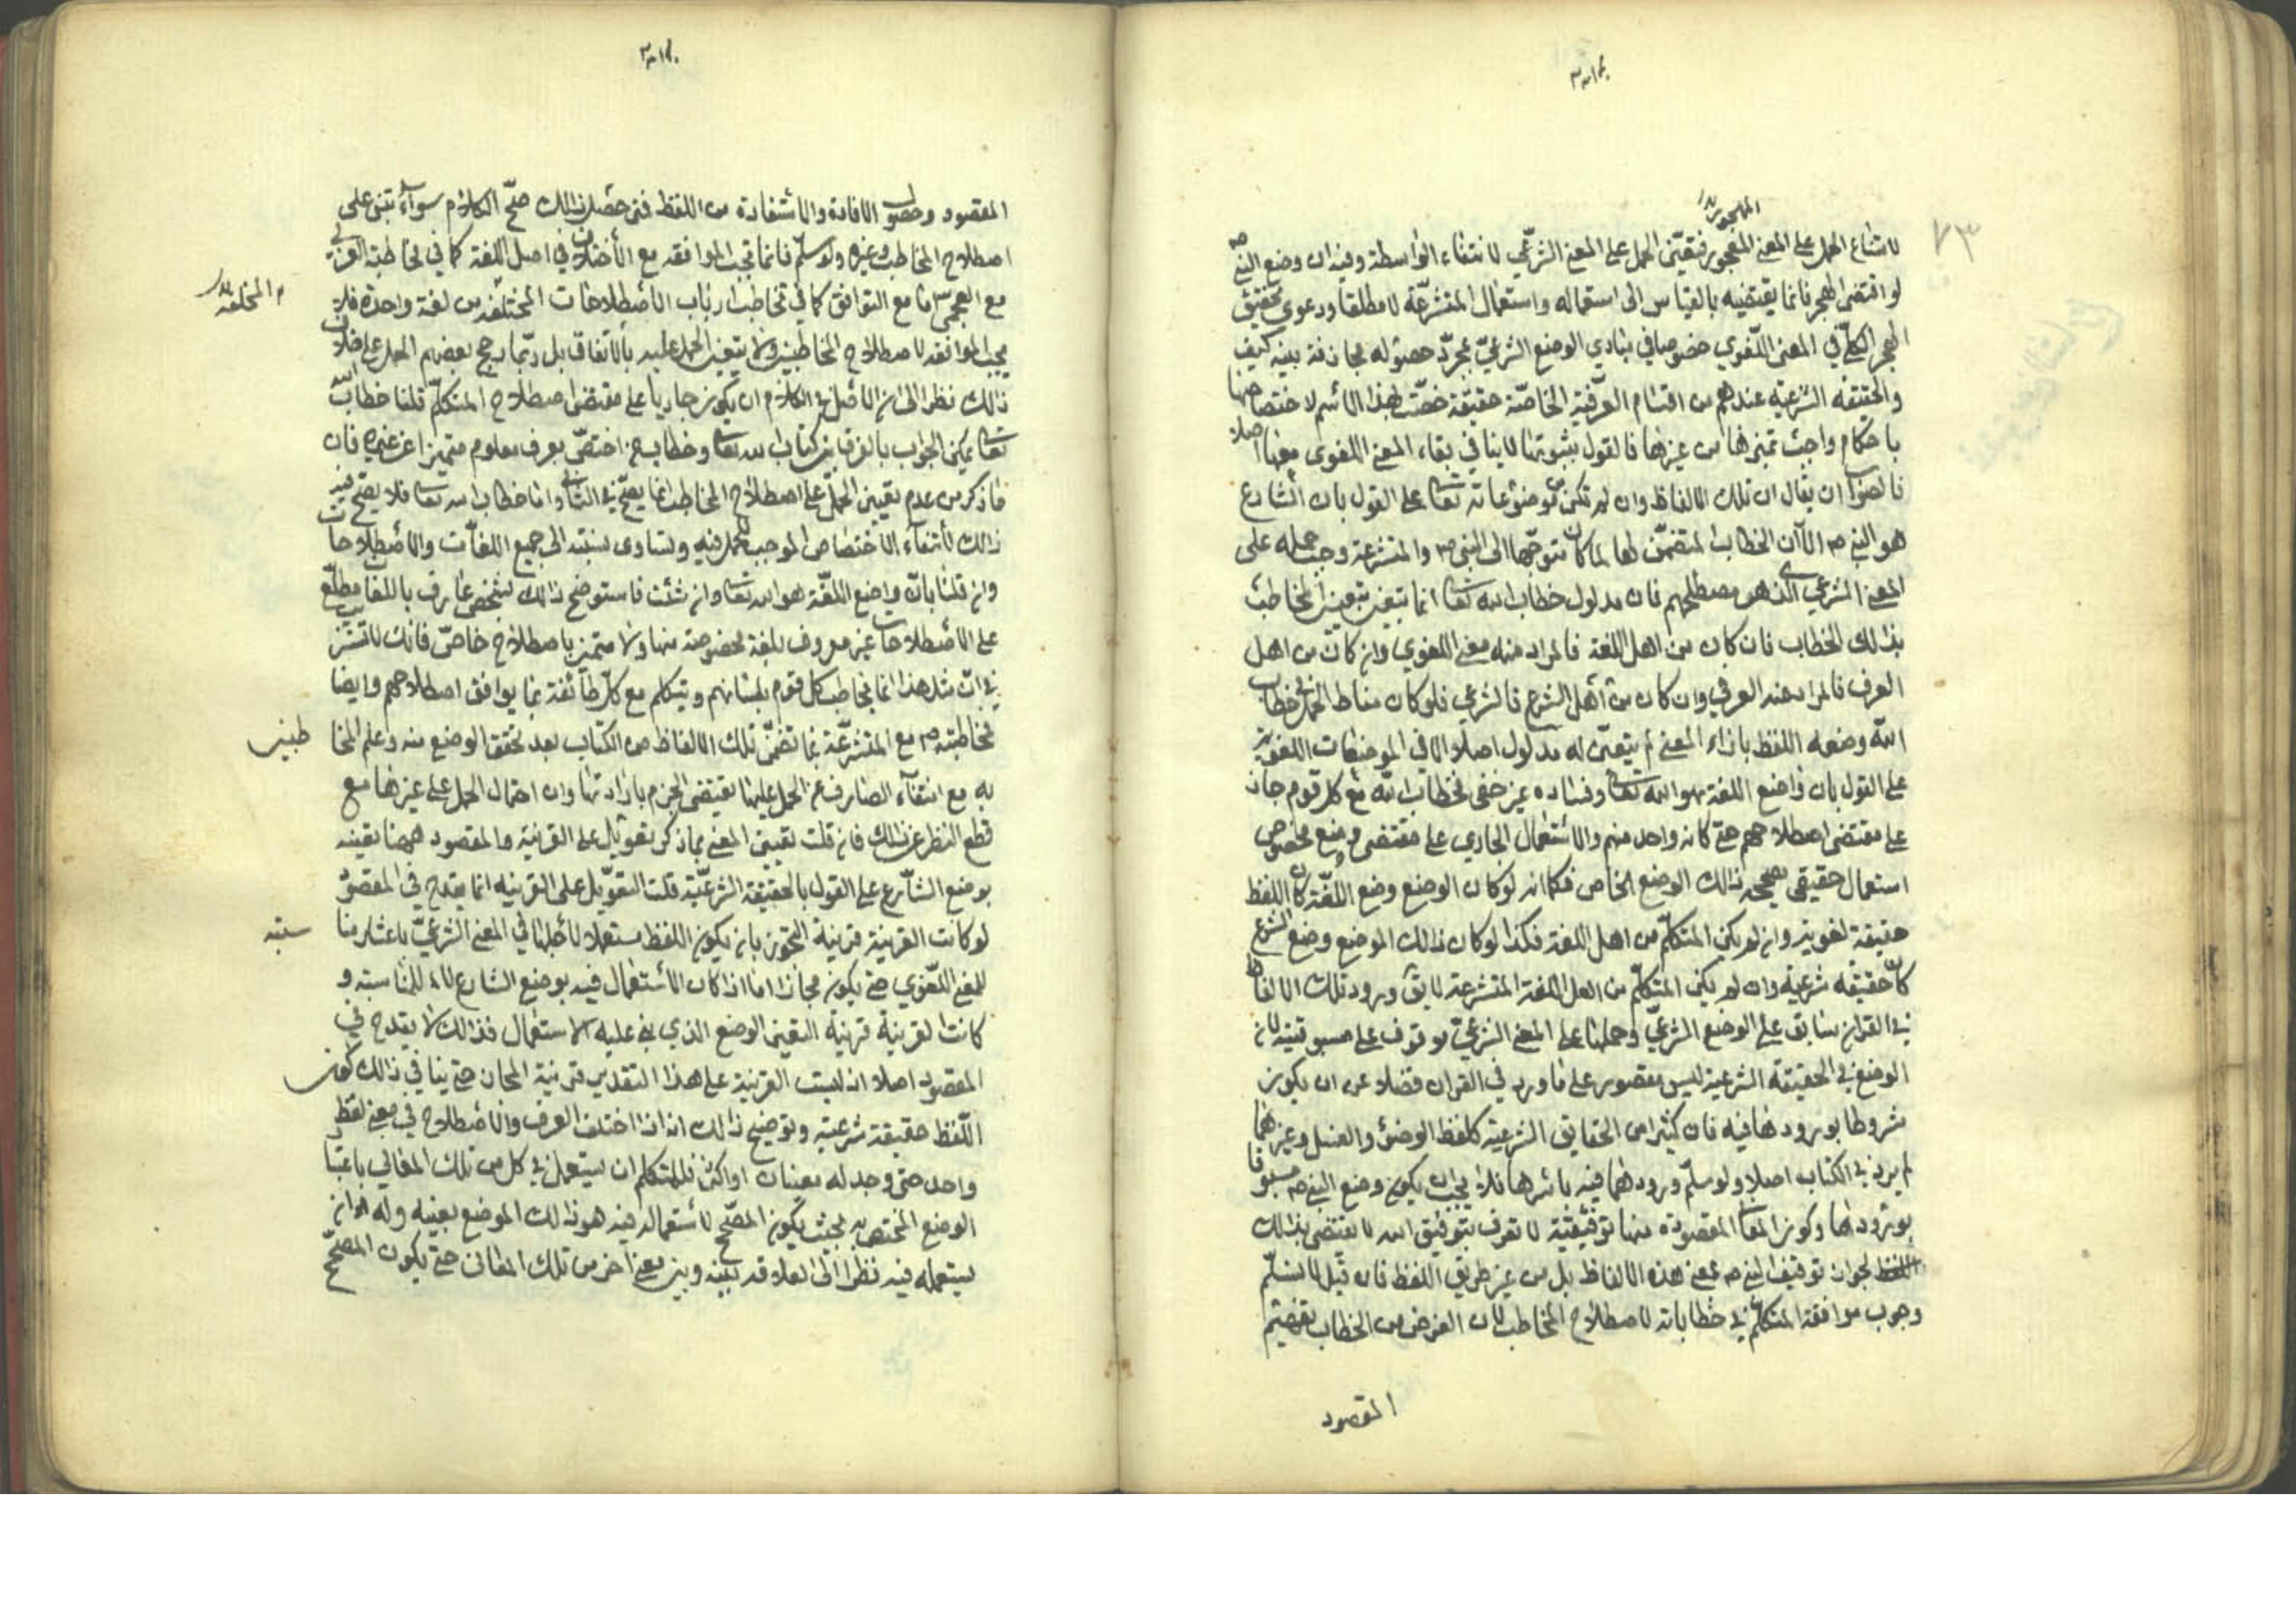 المهجور
لامتناع الحمل على المعنى المهجور فتعيّن الحمل على المعنى الشرعي لانتفاء الواسطة وفيه ان وضع النبي ص
لو اقتضى الهجر فانما يقتضيه بالقياس الى استعماله واستعمال المتشرّعة لا مطلقا ودعوى تحقيق
الهجر الكلّي في المعنى اللّغوي خصوصا في مبادي الوضع الشرعيّ بمجرّد حصوله مجازفة بينة كيف
والحقيقه الشرعيّه عندهم من اقسام العرفيّة الخاصّة حقيقة خصّت بهذا الاسم لاختصاصها
باحكام واجبت تميزها من غيرها فالقول بثبوتها لا ينافي بقاء المعنى اللغوى معها اصلا
فالصواب ان يقال ان تلك الالفاظ وان لم تكن موضوعاته تعالى على القول بان الشارع
هو النبي ص الا ان الخطاب المتضمّن لها لما كان متوجّها الى النبي ص والمتشرعة وجب حمله على
المعنى الشرعي الذى هو مصطلحهم فان مدلول خطاب الله تعالى انما يتعين بتعين المخاطب
بذلك الخطاب فان كان من اهل اللغة فالمراد منه معنى اللغوي وان كان من اهل
العرف فالمراد منه العرفي وان كان من اهل الشرع فالشرعي فلو كان مناط الحمل في خطاب
الله وضعه اللفظ بازاء المعنى لم يتعيّن له مدلول اصلا الا في الموضوعات اللغوية
على القول بان واضع اللغة هو الله تعالى وفساده غير خفي فخطاب الله مع كل قوم جار
على مقتضى اصطلاحهم حتى كانه واحد منهم والاستعمال الجاري على مقتضى وضع مخصوص
استعمال حقيقي يصححه ذلك الوضع الخاص فكما انه لو كان الوضع وضع اللّغة كان اللفظ
حقيقة لغوية وان لم يكن المتكلّم من اهل اللغة فكذا لو كان ذلك الموضع وضع الشرع
كان حقيقه شرعية وان لم يكن المتكلّم من اهل اللغة المتشرعة لا يق ورود تلك الالفاظ
في القران سابق على الوضع الشرعيّ وحملها على المعنى الشرعيّ موقوف على مسبوقيته لان
الوضع في الحقيقة الشرعية ليس مقصور على ما ورد في القران فضلا عن ان يكون
مشروطا بورودها فيه فان كثيرا من الحقايق الشرعية كلفظ الوضوء والغسل وغيرهما
لم يرد في الكتاب اصلا ولو سلّم ورودهما فيه باسرها فلا يجب ان يكون وضع النبي ص مسبوقا
بورودها وكون المعاني المقصودة منها توقيفيّة لا تعرف بتوفيق الله لا يقتضى بذلك
لجواز توقيف النبي ص بمعنى هذه الالفاظ بل من غير طريق اللفظ فان قيل لا نسلّم
وجوب موافقة المتكلّم في خطاباته لاصطلاح المخاطب لان الغرض من الخطاب تفهيم
المقصود
المقصود وحصول الافادة والاستفادة من اللفظ فمتى حصل ذلك صحّ الكلام سواء بتنى على
اصطلاح المخاطب او غيره ولو سلّم فانما تجب الموافقه مع الاختلاف في اصل اللغة كما في مخاطبة العربي
مع العجمى اما مع التوافق كما في تخاطب ارباب الاصطلاحات المختلفه من لغة واحدة فلا
المختلفه
يجب الموافقه لاصطلاح المخاطبين ولا يتعين الحمل عليه بالاتفاق بل ربّما يرجح بعضهم الحمل على خلاف
ذلك نظرا الى ان الاصل في الكلام ان يكون جاريا على مقتضى اصطلاح المتكلّم قلنا خطاب الله
تعالى يمكن الجواب بالفرق بين كتاب الله تعالى وخطاب من اختصّ بعرف معلوم متميزا عن غيره فان
ما ذكر من عدم تعيين الحمل على اصطلاح المخاطب انما يصحّ في الثاني واما خطاب الله تعالى فلا يصح فيه
ذلك لانتفاء الاختصاص الموجب للحمل فيه وتساوى نسبته الى جميع اللغات والاصطلاحات
وان قلنا بان واضع اللغة هو الله تعالى وان شئت فاستوضح ذلك بشخص عارف باللغات مطلّع
على الاصطلاحات غير معروف بلغة مخصوصة منها ولا متميز باصطلاح خاصّ فانك لا تستريب
في انّ مثل هذا انما يخاطب كل قوم بلسانهم ويتكلم مع كلّ طائفة بما يوافق اصطلاحهم وايضا
فمخاطبته ص مع المتشرّعة بما تضمّن تلك الالفاظ من الكتاب بعد تحقق الوضع منه وعلم المخا
طبين
به مع انتفاء الصارف عن الحمل عليها يقتضى الجزم بارادتها وان احتمال الحمل على غيرها مع
قطع النظر عن ذلك فان قلت تعيين المعنى بما ذكر تعويل على القرينة والمقصود ههنا تعينه
بوضع الشارع على القول بالحقيقة الشرعيّة قلت التعويل على القرينه انما يقدح في المقصود
لو كانت القرينة قرينة التجوز بان يكون اللفظ مستعملا لاجلها في المعنى الشرعيّ باعتبار منا
سبته
للمعنى اللّغوي حتى يكون مجازا اما اذا كان الاستعمال فيه بوضع الشارع لا للمناسبة و
كانت القرينة قرينة التعين الوضع الذي بنى عليه الاستعمال فذلك لا يقدح في
المقصود اصلا اذ ليست القرينة على هذا التقدير قرينة المجاز حتى ينافي ذلك كون
اللّفظ حقيقة شرعيّة وتوضيح ذلك انه اذا اختلف العرف والاصطلاح في معنى لفظ
واحد حتى وجد له معنيان او اكثر فللمتكلم ان يستعمل في كل من تلك المعاني باعتبار
الوضع المختص به بحيث يكون المصحّح لاستعماله فيه هو ذلك الموضع بعينه وله ان
يستعمله فيه نظرا الى العلاقة بينه وبين معنى آخر من تلك المعانى حتى يكون المصحّح